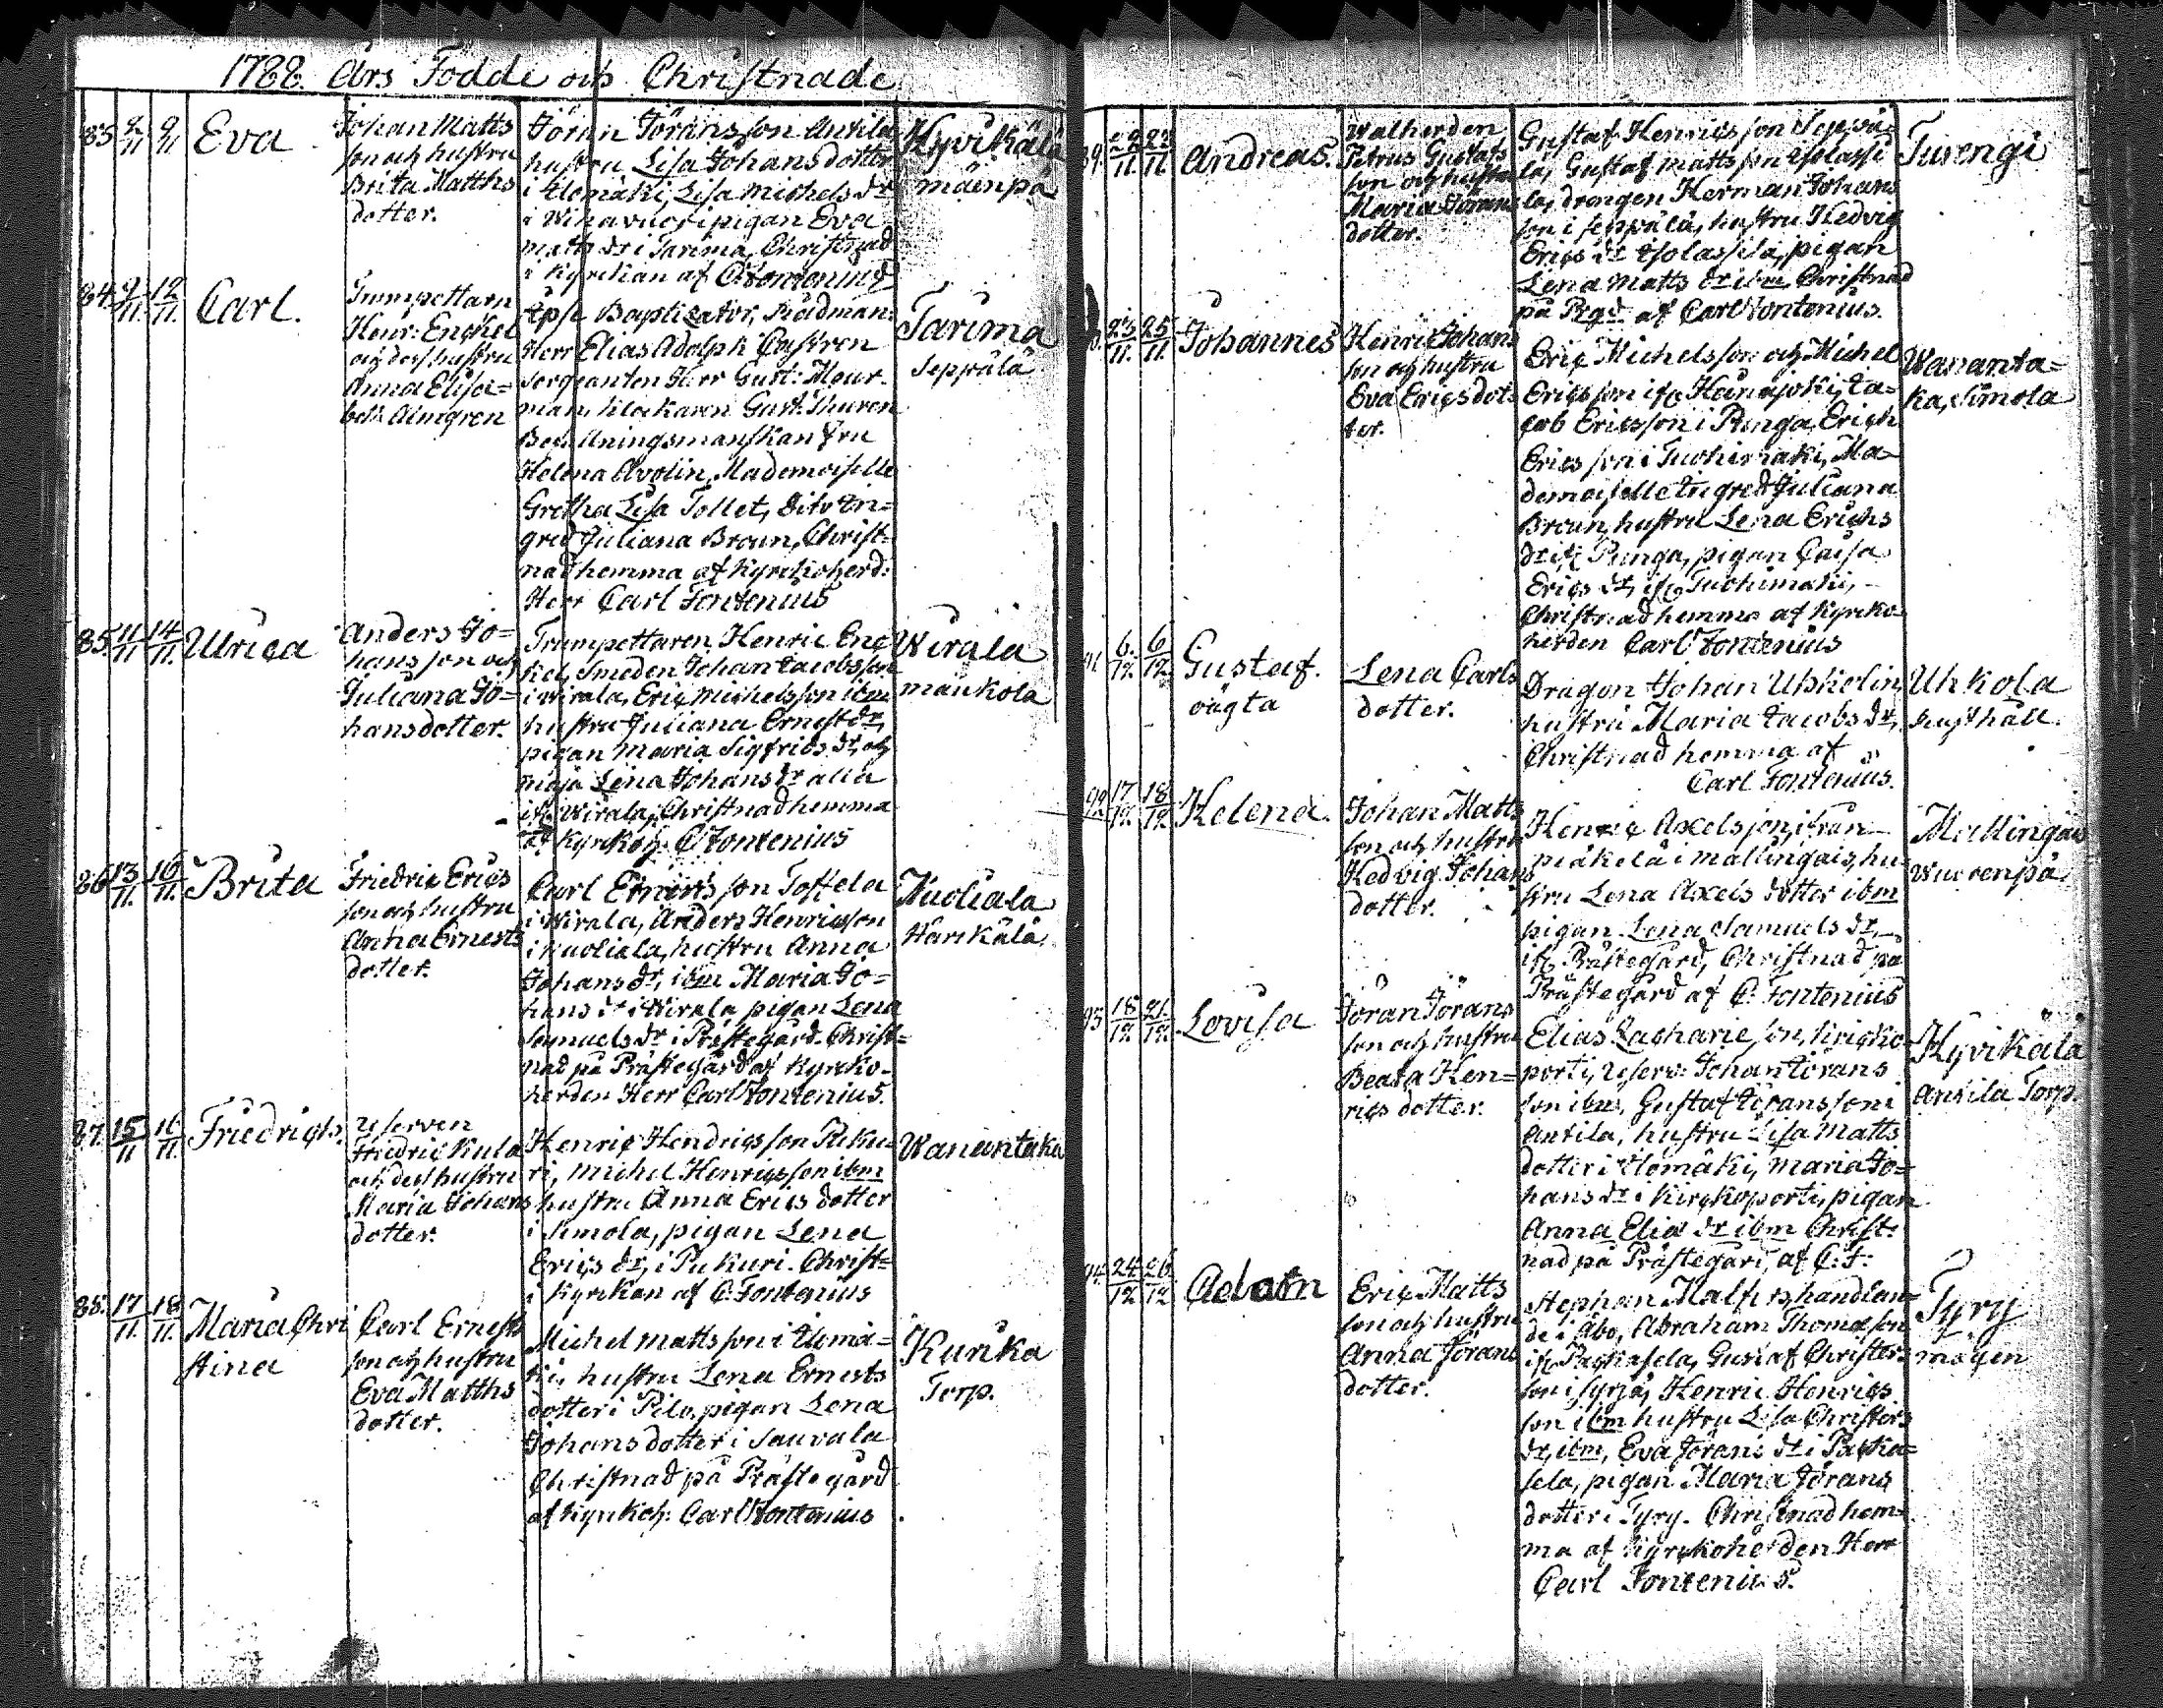 1788. Års Födde och Christnade
83. 9/11 9/11 Eva
Johan Matts
son och hustru
Brita Matths
dotter.
Jöran Jöransson Anttila
hustru Lisa Johansdotter
i Ylömäki, Lisa Michels dr
i pigan Eva
Matts dr i Tarima, Christnad
i Kyrckan af C Fontenius
Hyvikälä
mäenpä
84. 9/11. 12/11. Carl.
Trumpettarn
Henr: Enckel
och dess hustru
Anna Elisa=
beth Almgren
Ipse Baptizator, Rådman:
Herr Elias Adolph Castren
Sergeanten Herr Gust: Meur-
man, klockaren Gust: Thuren
Befallningsmanskan Fru
Helena Avolin, Mademoiselle
Gretha Lisa Tollet, dito In=
gred Juliana Broun, Christ=
nad hemma af Kyrckoherd:
Herr Carl Fontenius
Tarima
Seppälä
85. 11/11 14/11. Ulrica
Anders Jo=
hansson och
Juliana Jo=
hansdotter.
Trumpettaren Henric Enc
kel, Smeden Johan Jacobsson
i Wirala, Eric Michelsson ibm
hustru Juliana Ernest dr,
pigan Maria Sigfrids dr, och
Maja Lena Johans dr alla
ifr. Wirala, Christnad hemma
af Kyrckoh. C Fontenius
Wirala
mänkola
86 13/11. 16/11. Brita
Friedric Erics
son och hustru
Anna Ernests
dotter.
Carl Ernests son Toffela
i Wirala, Anders Henricsson
i Kuoliala, hustru Anna
Johans dr, ibm Maria Jo=
hans dr i Wirala pigan Lena
Samuels dr i Prästegård. Christ=
nad på Prästegård af Kyrcko-
herden Herr Carl Fontenius.
Kuoliala
Harckälä
87. 15/11 16/11. Friedrich.
reserven
Friedric Kula
och dess hustru
Maria Johans
dotter.
Henric Hendricsson Puku=
ri, Michel Henricsson ibm
hustru Anna Erics dotter
i Simola, pigan Lena
Erics dr, i Pukuri. Christ=
i Kyrckan af C: Fontenius
Wanantaka
88. 17/11. 18/11. Maria Chri
stina
Carl Ernests
son och hustru
Eva Matths
dotter.
Michel Mattsson i Ylömä=
ki, hustru Lena Ernests
dotter i Pilo, pigan Lena
Johansdotter i Sauvala
Christnad på Prästegård
af Kyrckoh: Carl Fontenius.
Kurika
Torp.
89. 22/11. 23/11. Andreas.
Walherden
Petrus Gustafs
son och hustru
Maria Jörans
dotter.
Gustaf Henricsson Seppä=
lä, Gustaf Mattsson Ysolassi
la, drengen Herman Johans
son i Seppälä, hustru Hedvig
Erics dr Ysolassila, pigan
Lena Matts dr ibm, Christnad
på Prgd. af Carl Fontenius.
Turengi
90. 23/11. 25/11 Johannes
Henric Johans
son och hustru
Eva Erics dot=
ter.
Eric Michelsson och Michel
Ericsson ifr. Heinäjoki, Ja=
cob Ericsson i Punga, Erich
Ericsson i Tuohimäki, Ma=
demoiselle Ingred Juliana
Broun, hustru Lena Erichs
dr ifr Punga, pigan Caisa
Erics dr, ifr Tuohimäki, -
Christnad hemma af Kyrcko-
herden Carl Fontenius
Wananta=
ka, Simola
91 6/12. 6/12 Gustaf.
oägta
Lena Carls
dotter.
Dragon Johan Uhkolin,
hustru Maria Jacobs dr,
Christnad hemma af
Carl Fontenius.
Uhkola
rusthåll.
92. 17/12. 18/12 Helena.
Johan Matts
son och hustru
Hedvig Johans
dotter.
Henric Axelsson, ifrån
Mäkelä i Mallingais, hu=
stru Lena Axels dotter ibm
pigan Lena Samuels dr,
ifr. Prästegård, Christnad på
Prästegård af C: Fontenius
Mallingais
Wuorenpä
93 18/12. 21/12. Lovisa
Jöran Jörans
son och hustru
Beata Hen=
rics dotter.
Elias Zacharie son, Kircko=
porti, reserv: Johan Jörans
son ibm, Gustaf Göransson i
Anttila, hustru Lisa Matts
dotter i Ylömäki, Maria Jo=
hans dr i Kirckoporti, pigan
Anna Elia dr ibm Christ:
nad på Prästegård, af C: F:
Hyvikälä
Anttila Torp.
94. 24/12 26/12 Adam
Eric Matts
son och hustru
Anna Jörans
dotter.
Stephan Malm, handlan=
de i Åbo, Abraham Thomasson
ifr. Paskasela, Gustaf Christers
son i Syrjä, Henric Henrics
son ibm hustru Lisa Christers
dr, ibm, Eva Jörans dr i Paska=
sela, pigan Maria Jörans
dotter i Tyry. Christnad hem=
ma af Kyrckoherden Herr
Carl Fontenius.
Tyry